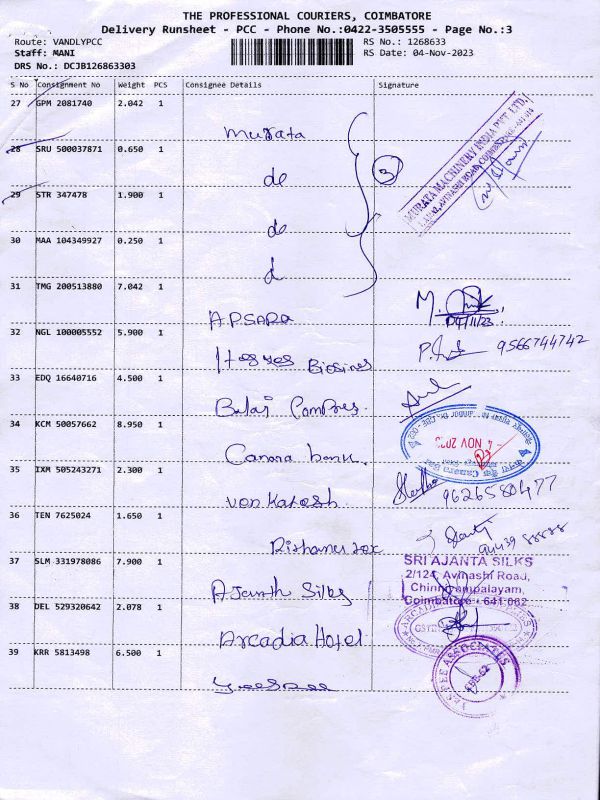 THE PROFESSIONAL COURIERS, COIMBATORE
Delivery Runsheet - PCC - Phone No.:0422-3505555 - Page No.:3
Route: VANDLYPCC RS No.: 1268633
Staff: MANI RS Date: 04-Nov-2023
DRS No.: DCJB126863303
S No Consignment No Weight PCS Consignee Details Signature
27 GPM 2081740 2.042 1
Murata
MURATA MACHINERY INDIA PVT. LTD.
28 SRU 500037871 0.650 1
de
3
29 STR 347478 1.900 1
de
30 MAA 104349927 0.250 1
d
31 TMG 200513880 7.042 1
APSARA
04/11/23
32 NGL 100005552 5.900 1
9566744742
33 EDQ 16640716 4.500 1
Balaj
34 KCM 50057662 8.950 1
Canara bank.
4 NOV 20
35 IXM 505243271 2.300 1
Venkatesh
9626580477
36 TEN 7625024 1.650 1
37 SLM 331978086 7.900 1
Ajanth Silks
SRI AJANTA SILKS
2/124, Avinashi Road,
Chinniyampalayam,
Coimbatore - 641 062
38 DEL 529320642 2.078 1
Arcadia Hotel
39 KRR 5813498 6.500 1
ASSOCIATES